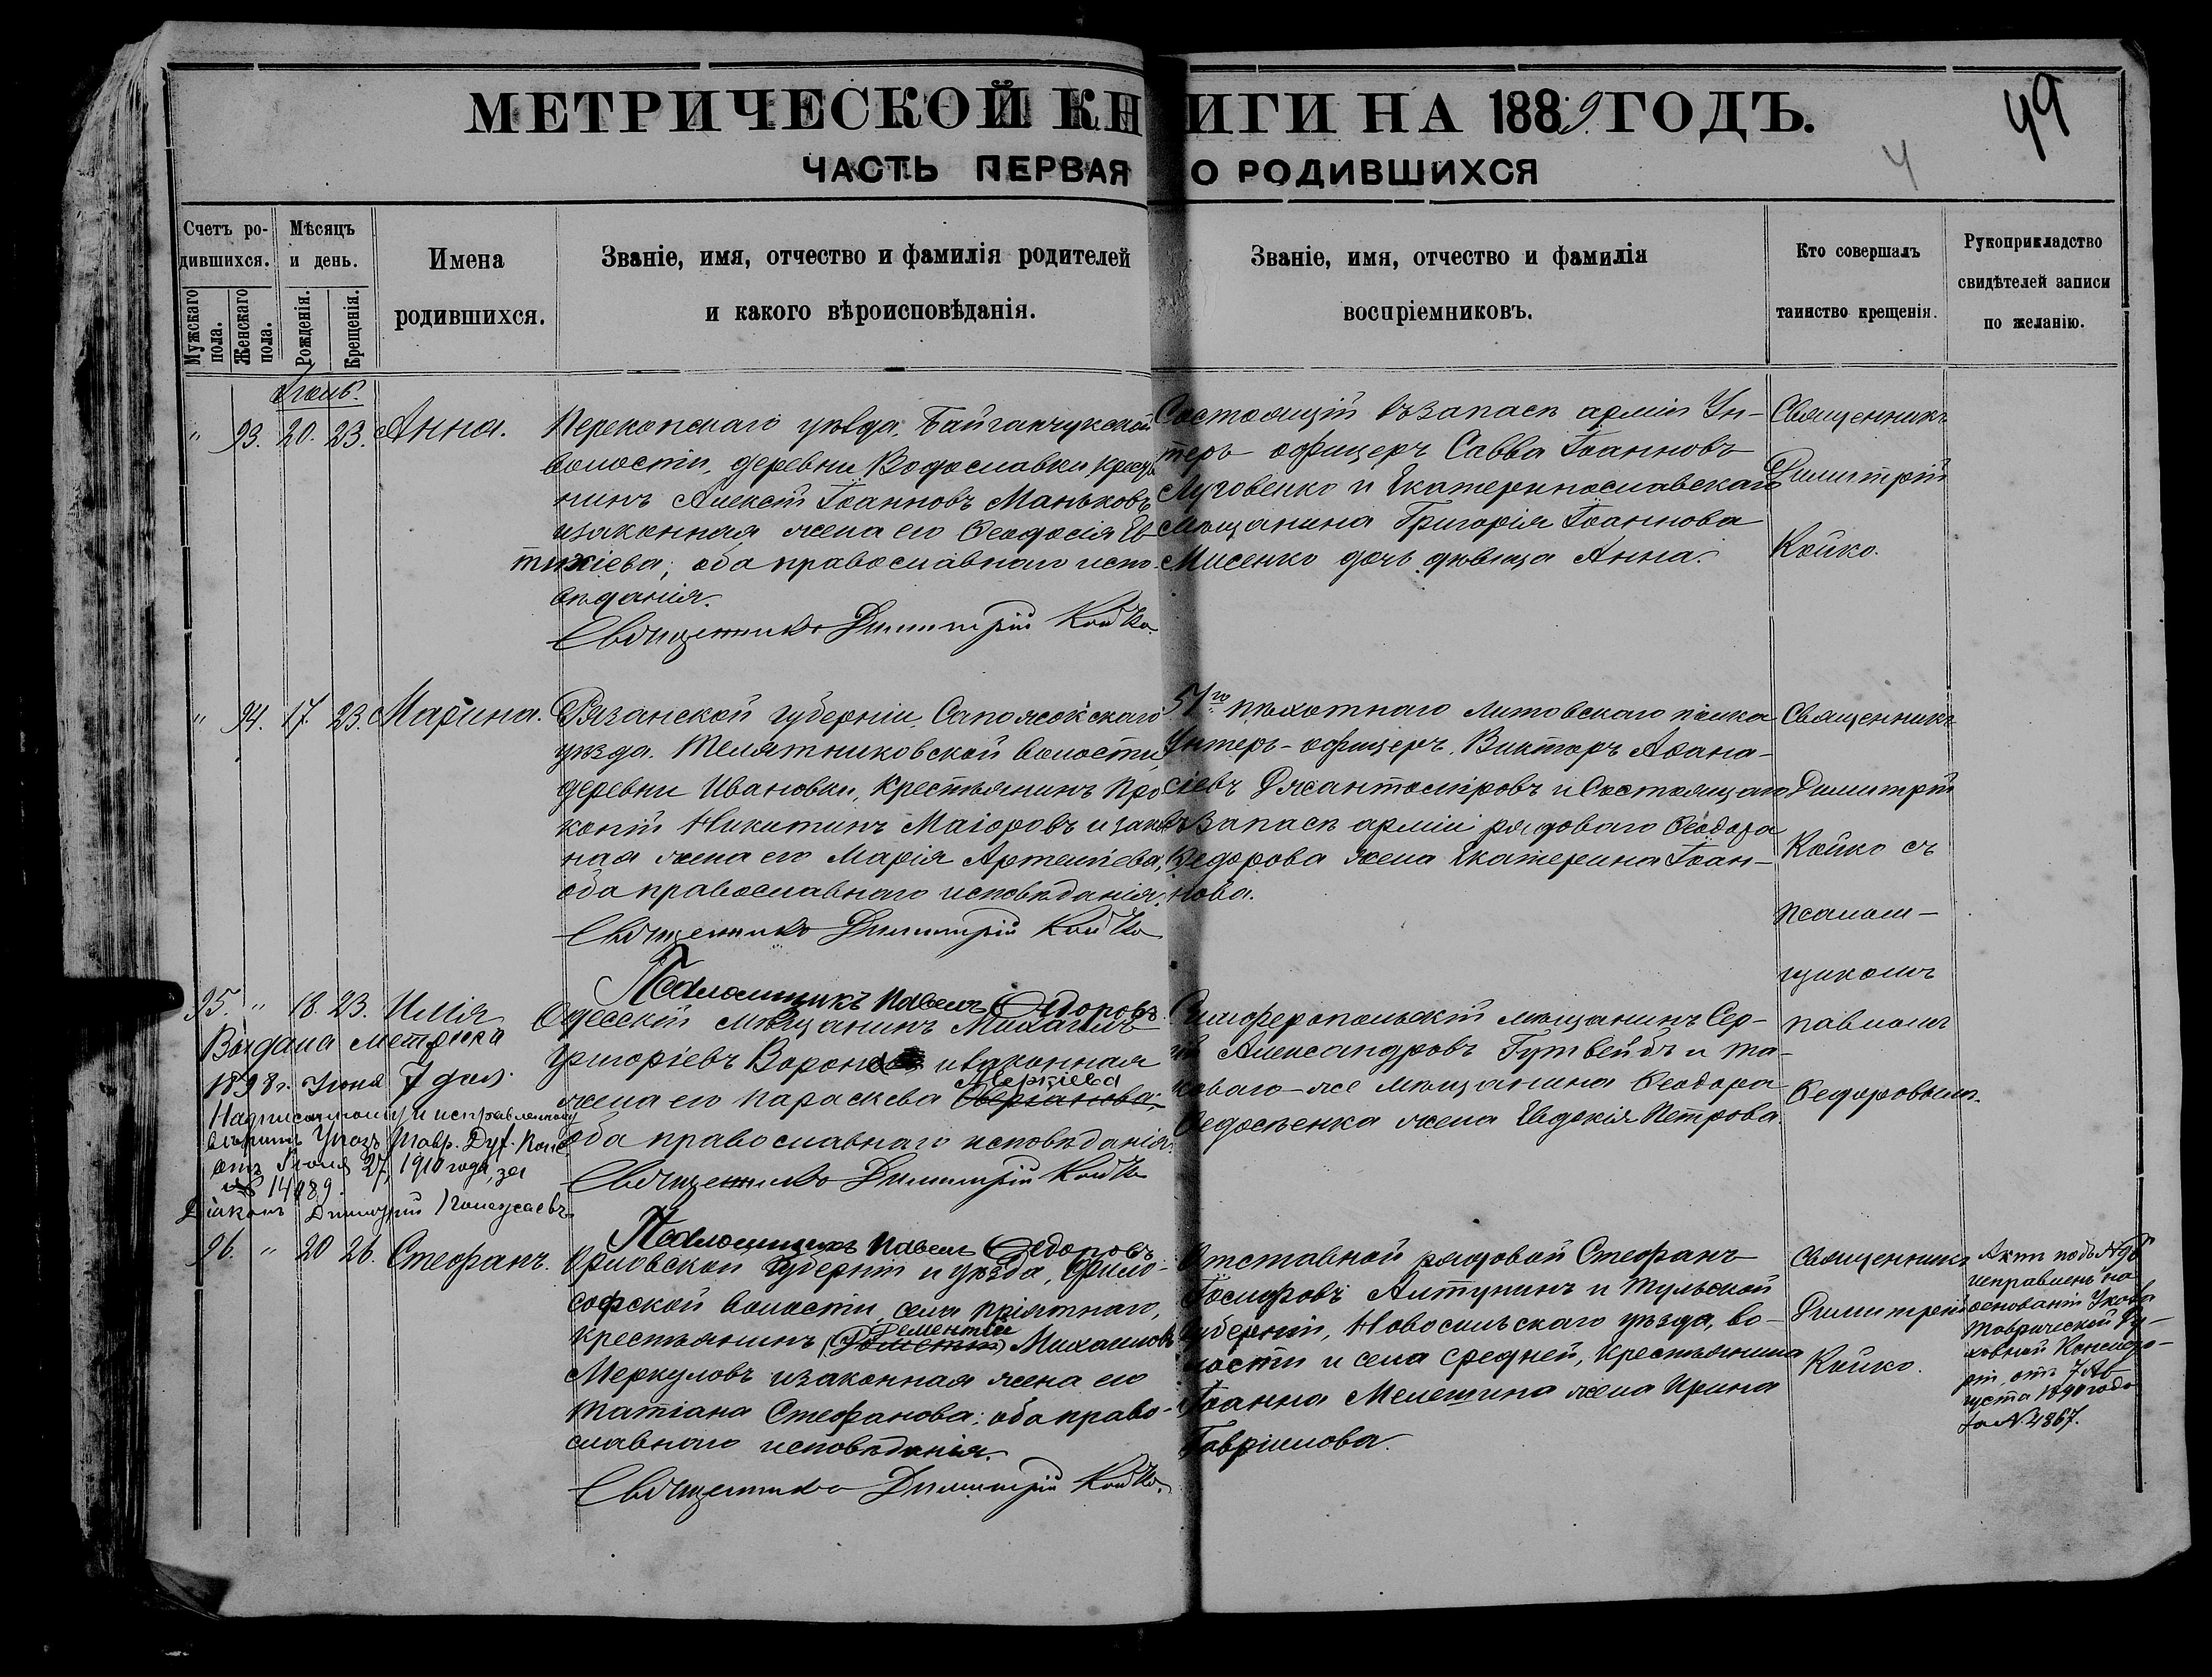 МЕТРИЧЕСКОЙ КНИГИ НА 1889 ГОДЪ.
49
4
ЧАСТЬ ПЕРВАЯ О РОДИВШИХСЯ
Счетъ родившихся.
Мужскаго пола.
Женскаго пола.
Мѣсяцъ и день.
Рожденія.
Крещенія.
Имена
родившихся.
Званіе, имя, отчество и фамилія родителей
и какого вѣроисповѣданія.
Званіе, имя, отчество и фамилія
воспріемниковъ.
Кто совершалъ
таинство крещенія.
Рукоприкладство
свидѣтелей записи
по желанію.
" 93. 20. 23. Анна.
Перекопскаго уѣзда, Байганчукской
волости, деревни Водославки, кресть
нинъ Алексѣй Іоанновъ Маньковъ
изаконная жена его Ѳеодосія Ев
тихіева; оба православнаго испо-
вѣданія.
Священникъ Димитрій Койко.
Состоящій въ запасѣ арміи Ун-
теръ офицеръ Савва Іоанновъ
Луговенко и Екатеринославскаго
мѣщанина Григорія Іоаннова
Мисенко дочь дѣвица Анна.
Священникъ
Димитрій
Койко.
" 94. 17. 23. Марина.
Рязанской губерніи, Сапожокскаго
уѣзда. Телятниковской волости,
деревни Ивановки, крестьянинъ Про
копій Никитинъ Маіоровъ и закон
ная жена его Марія Артемьева,
оба православнаго исповѣданія.
Священникъ Димитрій Койко
Псаломщикъ Павелъ Ѳедоровъ.
57го пѣхотнаго Литовскаго полка
Унтеръ-офицеръ, Викторъ Аѳана-
сіевъ и Состоящаго
въ Запасѣ арміи рядоваго Ѳеодора
Ѳедорова жена Екатерина Іоан-
нова.
Священникъ
Димитрій
Койко съ
псалом-
щикомъ
Павломъ
Ѳедоровымъ.
95. " 18. 23. Илія
Выдана метрика
1898 г. Іюня 7 дня.
Надписанному и исправленному
вѣрить Указъ Тавр. Дух. Конс.
отъ Іюля 27, 1910 года, за
№ 14089.
Діаконъ Димитрій Полежаевъ
Одесскій мѣщанинъ Михаилъ
Григоріевъ изаконная
Маркіева
жена его Параскева
оба православнаго исповѣданія.
Священникъ Димитрій Койко
Псаломщикъ Павелъ Ѳедоровъ
Симферопольскій мѣщанинъ Сер-
гѣй Александровъ и та-
коваго-же мѣщанина Ѳеодора
жена Евдокія Петрова.
96. " 20 26. Стефанъ.
Орловской губерніи и уѣзда, Фило-
софской волости, села Пріятнаго,
Дементій
крестьянинъ Михаиловъ
Меркуловъ изаконная жена его
Татіана Стефанова; оба право-
славнаго исповѣданія.
Священникъ Димитрій Койко.
Отставной рядовой Стефанъ
Іосифовъ и Тульской
губерніи, Новосильскаго уѣзда, во-
лости и села Средней, крестьянина
Іоанна Мелешина жена Ирина
Гавріилова.
Священникъ
Димитрій
Койко.
Актъ подъ №96
исправленъ на
основаніи Указа
Таврической Ду-
ховной Консисто-
ріи, отъ 7 Ав-
густа 1890 года
за №4867.